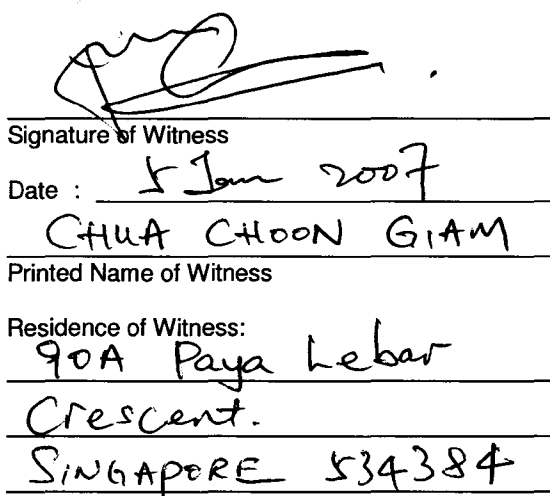 Signature of Witness
Date : 5 Jan 2007
CHUA CHOON GIAM
Printed Name of Witness
Residence of Witness:
90A Paya Lebar
Crescent.
SINGAPORE 534384